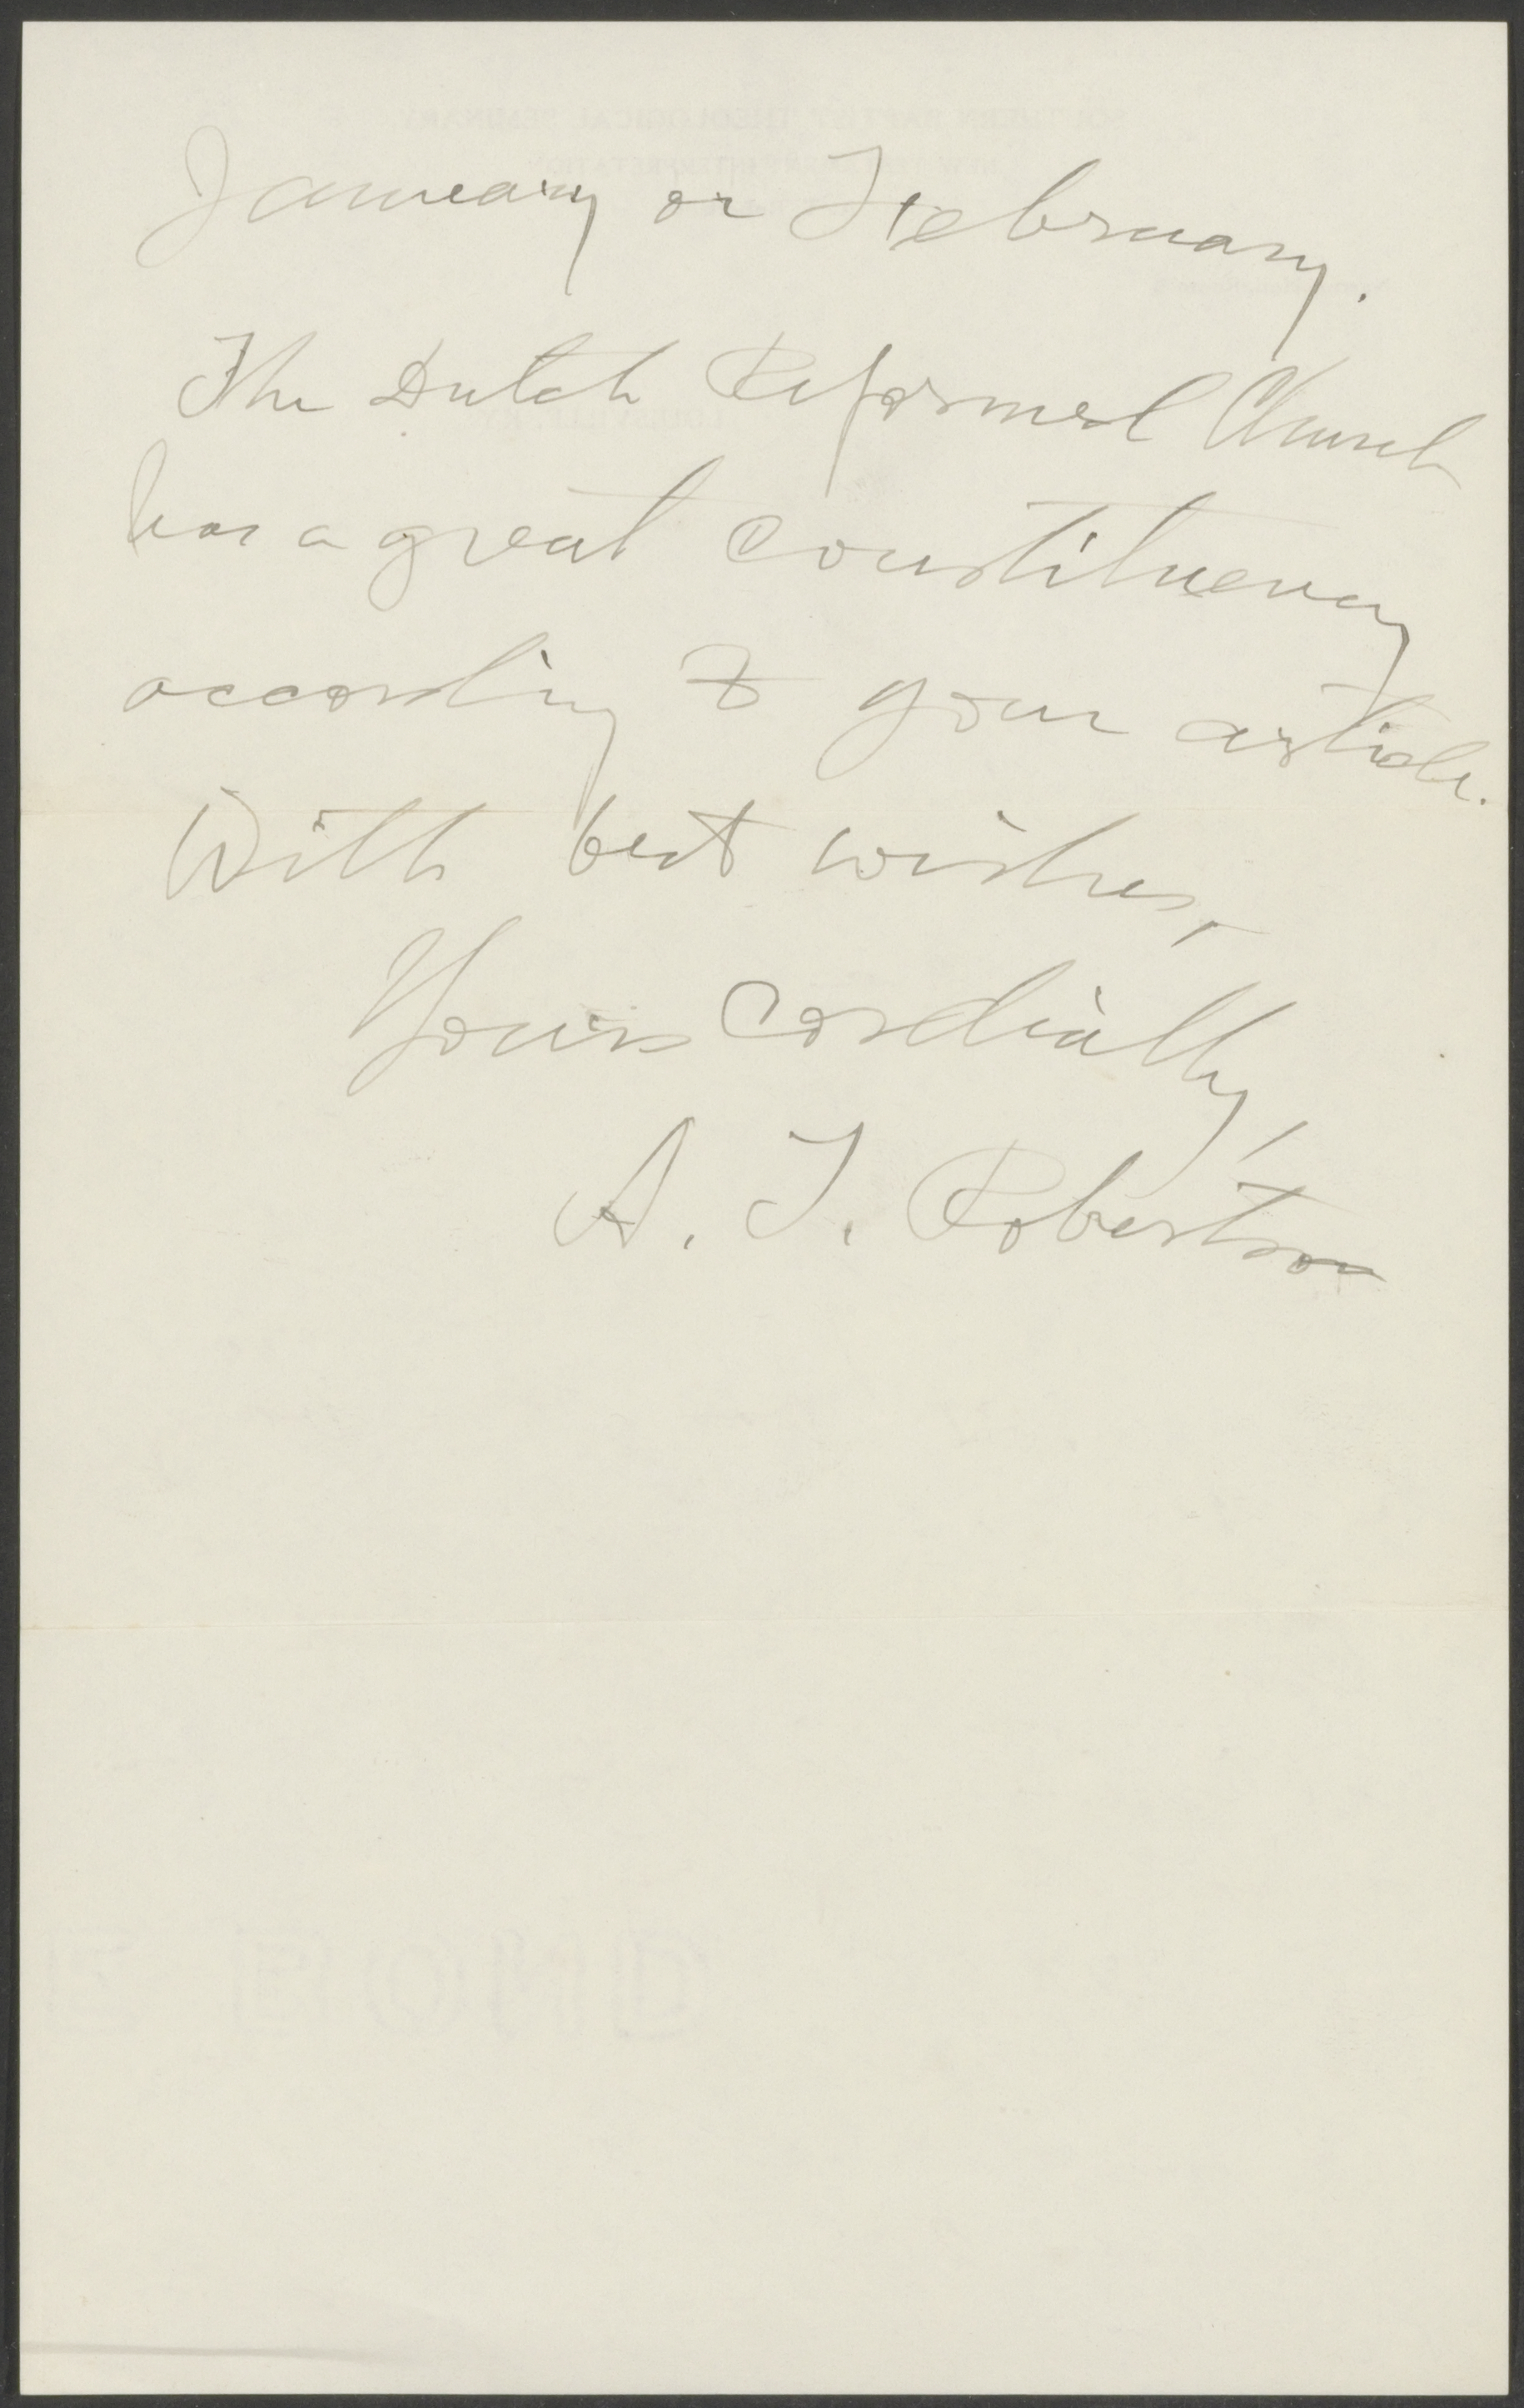 January or February.
The Dutch Reformed Church
has a great constituency
according to your article.
With best wishes,
Yours Cordially,
A. T. Robertson